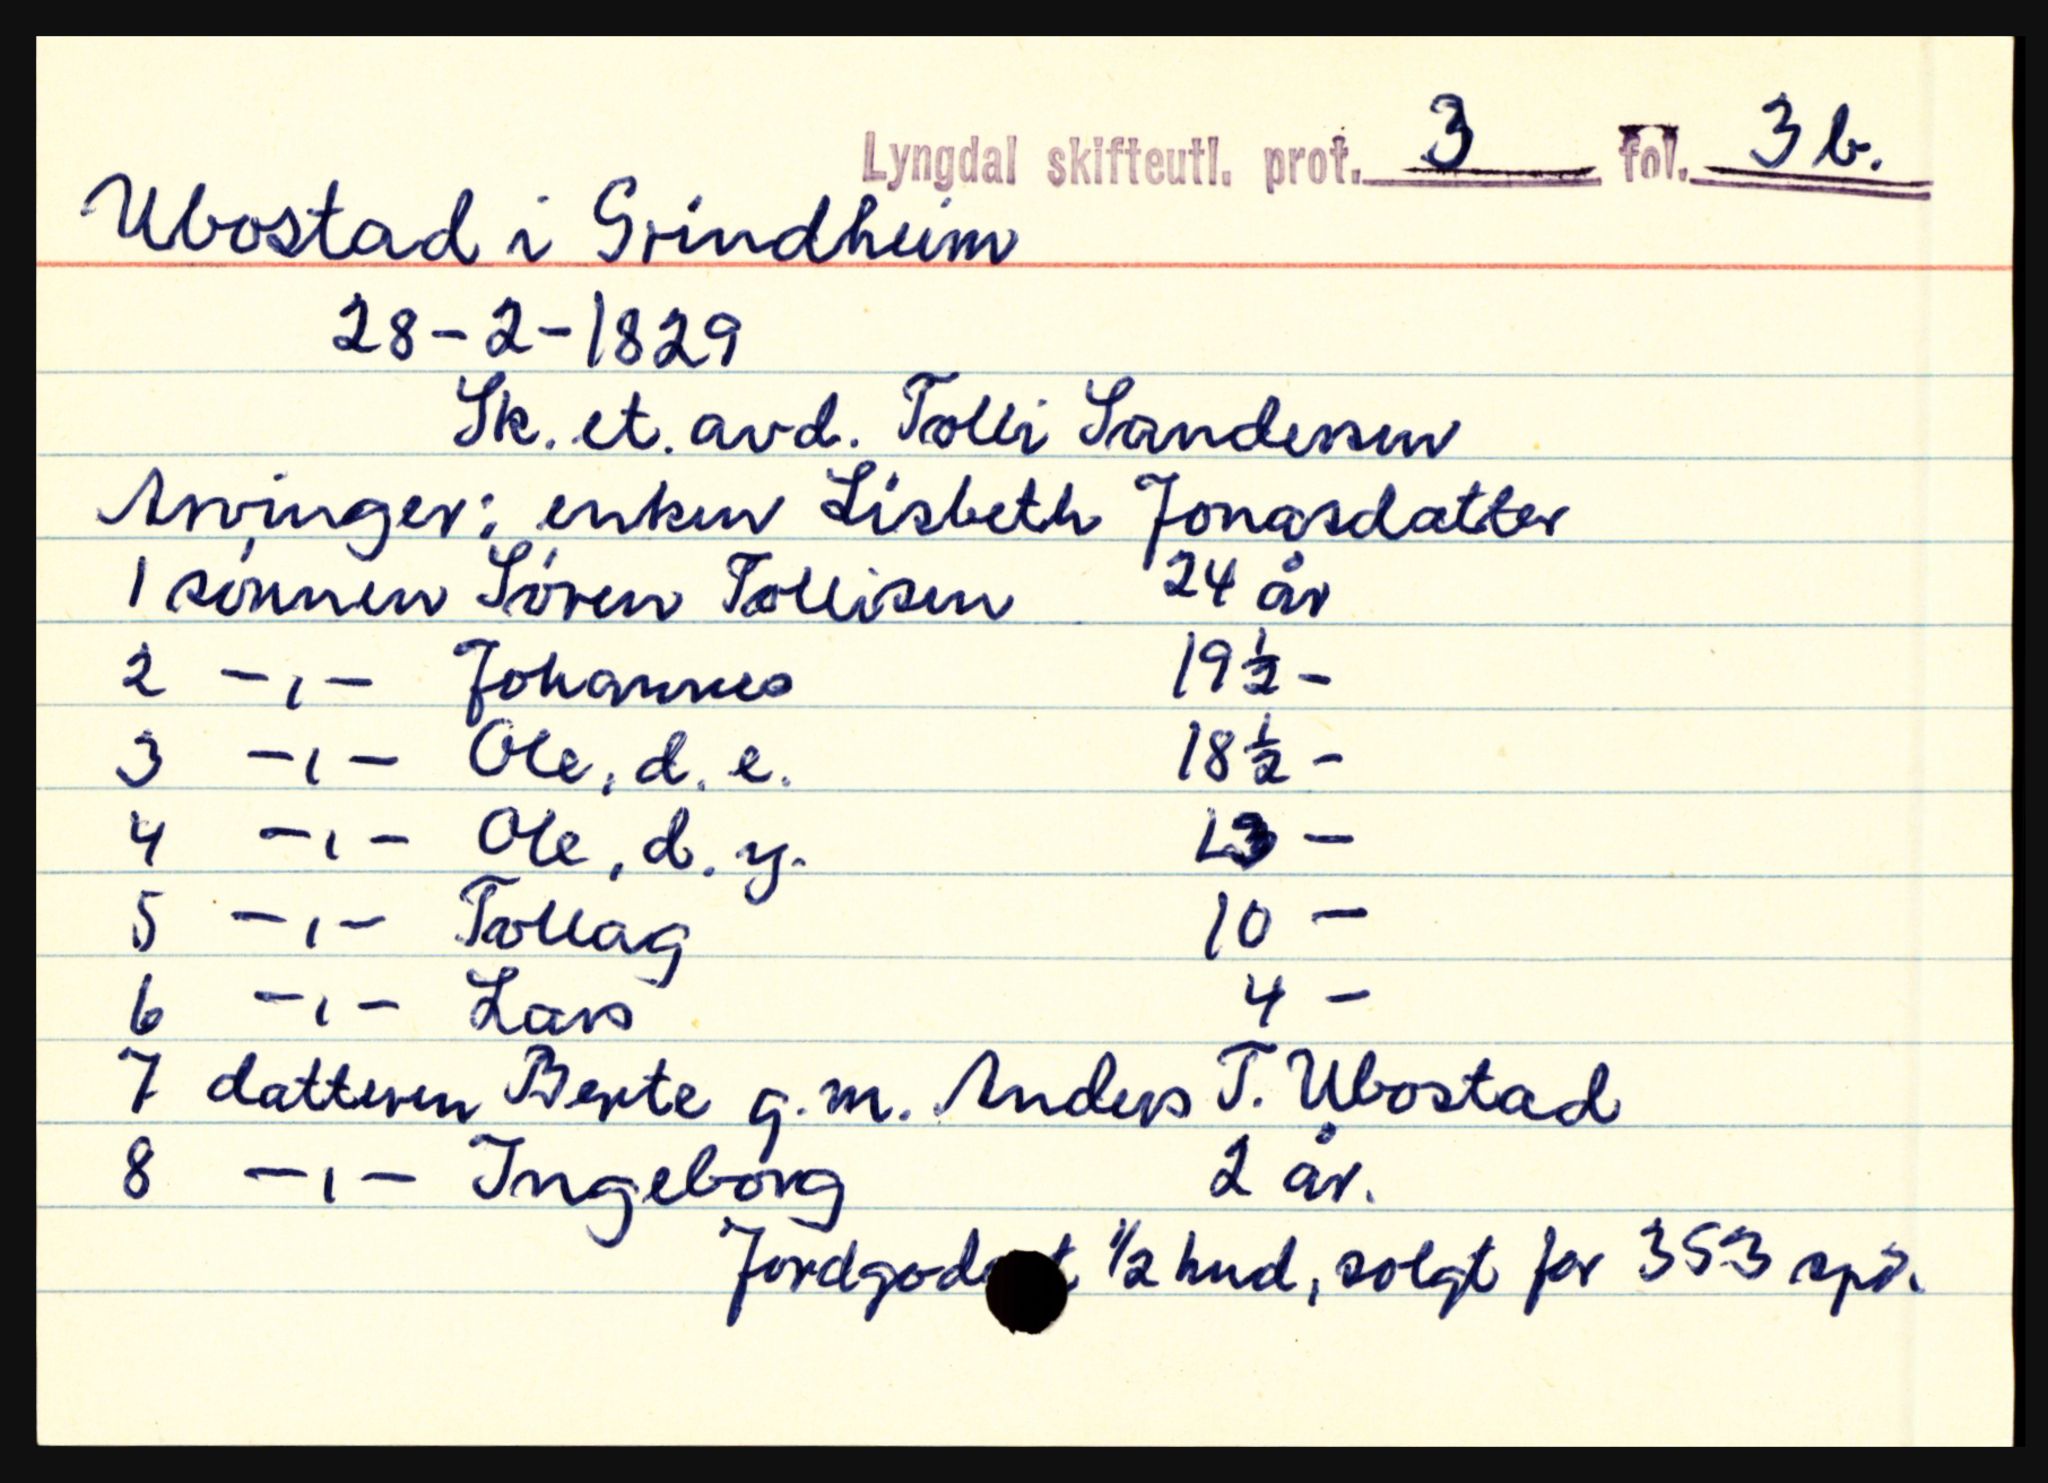 Lyngdal skifteutl. prot. 3 fol. 3 b.
Ubostad i Grindheim
28-2-1829
Sk. et. avd. Tolli Sandersen
Arvinger: enken Lisbeth Jonasdatter
1 sønnen Søren Tollisen 24 år
2 -,- Johannes 19 1/2 -
3 -,- Ole, d. e. 18 1/2 -
4 -,- Ole, d. y. 13 -
5 -,- Tollag 10 -
6 -,- Lars 4 -
7 datteren Berte g. m. Anders T. Ubostad
8 -,- Ingeborg 2 år.
1/2 hud, solgt for 353 spd.